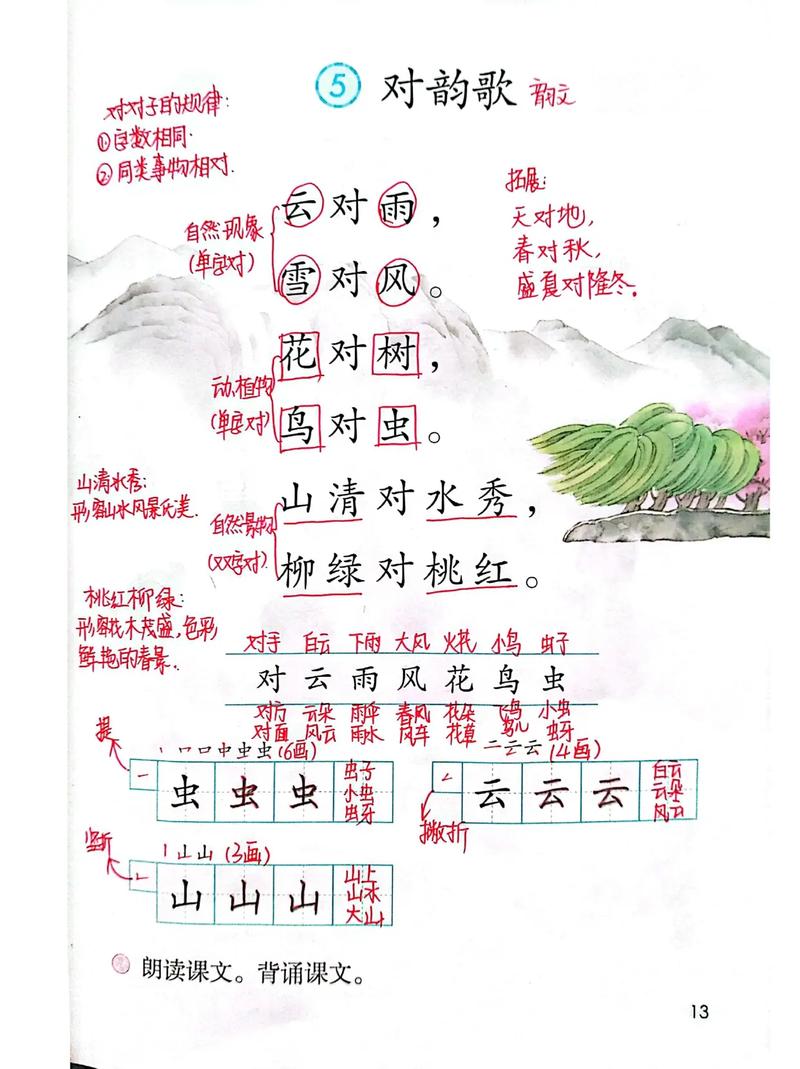 5 对韵歌 韵文
对对子的规律:
①字数相同.
②同类事物相对.
云对雨,
雪对风。
自然现象
(单字对)
拓展:
天对地,
春对秋,
盛夏对隆冬.
花对树,
鸟对虫。
动.植物
(单字对)
山清对水秀,
柳绿对桃红。
山清水秀:
形容山水风景优美.
自然景物
(双字对)
桃红柳绿:
形容花木茂盛,色彩
鲜艳的春景.
对手 白云 下雨 大风 火花 小鸟 虫子
对 云 雨 风 花 鸟 虫
对方 云朵 雨伞 春风 花朵 飞鸟 小虫
对面 风云 雨水 风车 花草 鸟儿 虫牙
提
丨 口 口 中 虫 虫 (6画)
虫 虫 虫
虫子
小虫
虫牙
二 云 云 (4画)
云 云 云
白云
云朵
风云
撇折
竖折
丨 山 山 (3画)
山 山 山
山上
山水
大山
朗读课文。背诵课文。
13